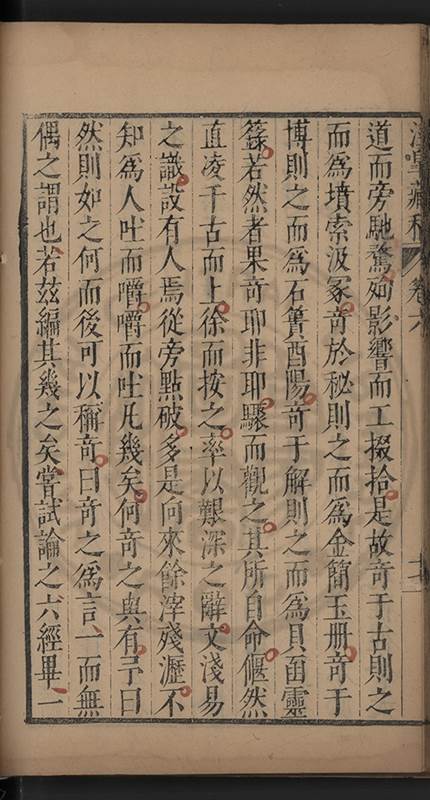 卷六
道而旁馳騖狥影響而工掇拾是故竒于古則之
而為墳索汲冢竒於秘則之而為金簡玉册竒于
博則之而為石簣酉陽竒于解則之而為貝函靈
籙若然者果竒耶非耶驟而觀之其所自命偃然
直凌千古而上徐而按之率以艱深之辭文淺易
之識設有人焉從旁點破多是向來餘滓殘瀝不
知為人吐而嚼嚼而吐凡幾矣何竒之與有予曰
然則如之何而後可以稱竒曰竒之為言一而無
偶之謂也若茲編其幾之矣嘗試論之六經畢一